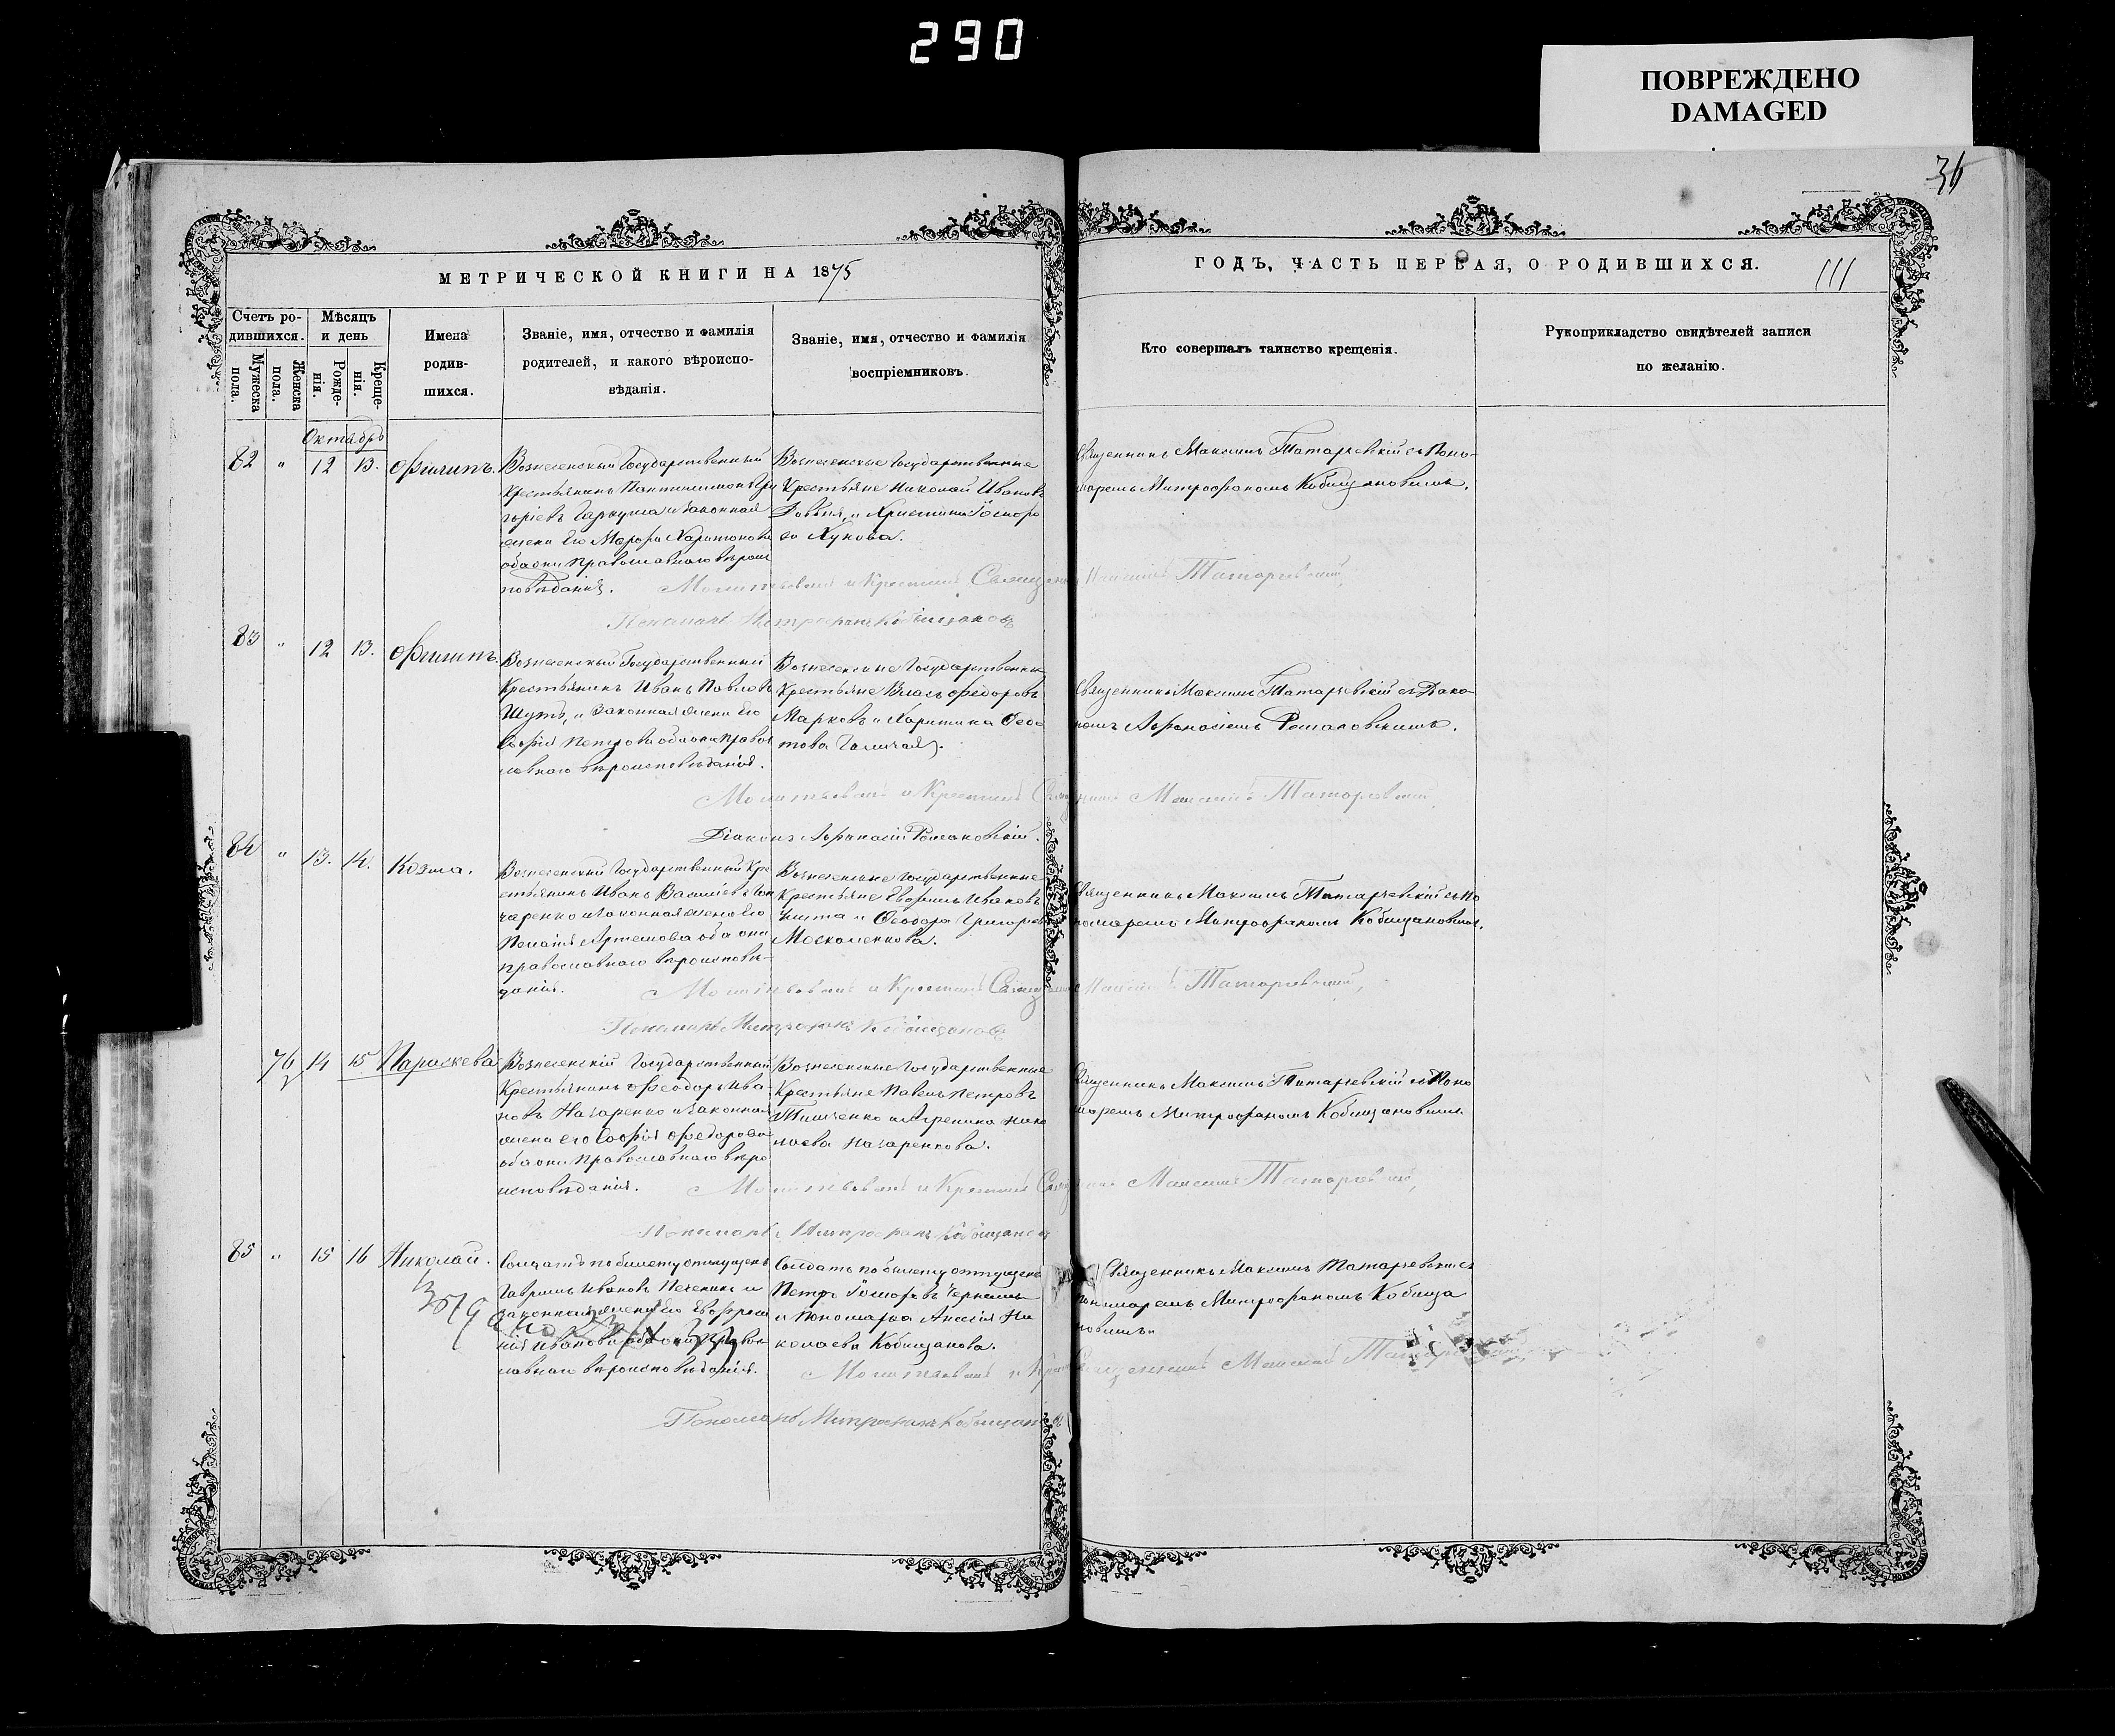 290
ПОВРЕЖДЕНО
DAMAGED
36
МЕТРИЧЕСКОЙ КНИГИ НА 1875
ГОДЪ, ЧАСТЬ ПЕРВАЯ, О РОДИВШИХСЯ.
111
Счетъ ро-
дившихся.
Мужеска
пола.
Женска
пола.
Мѣсяцъ
и день
Рожде-
нія.
Креще-
нія.
Имена
родив-
шихся.
Званіе, имя, отчество и фамилія
родителей, и какого вѣроиспо-
вѣданія.
Званіе, имя, отчество и фамилія
воспріемниковъ.
Кто совершалъ таинство крещенія.
Рукоприкладство свидѣтелей записи
по желанію.
Октябрь
82 " 12 13. Филиппъ.
Вознесенскій Государственный
Крестьянинъ
и законная
жена его Марфа Харитонова
обаони православнаго вѣроис
повѣданія.
Вознесенскіе Государственные
Крестьяне Николай Ивановъ
и Христина
Жукова.
Священникъ Максимъ Татаревскій съ Поно-
маремъ Митрофаномъ Кобищановымъ.
Молитвовалъ и Крестилъ Священникъ Максимъ Татаревскій,
Пономарь Митрофанъ Кобищановъ
83 " 12 13. Филиппъ.
Вознесенскій Государственный
Крестьянинъ Иванъ Павловъ
и законная жена его
Софія Петрова обаони право
славнаго вѣроисповѣданія.
Вознесенскіе Государственные
Крестьяне Власъ Федоровъ
Марковъ и Харитина
Священникъ Максимъ Татаревскій съ Діако-
номъ Афанасіемъ Романовскимъ.
Молитвовалъ и Крестилъ Священникъ Максимъ Татаревскій,
Діаконъ Афанасій Романовскій.
84 " 13. 14. Козма.
Вознесенскій Государственный Кре
стьянинъ Иванъ Василіевъ Гон
чаренко и законная жена его
Артемова оба они
православнаго вѣроисповѣ-
данія.
Вознесенскіе Государственные
Крестьяне Ивановъ
и Феодора Григорьева
Москаленкова.
Священникъ Максимъ Татаревскій съ По
номаремъ Митрофаномъ Кобищановымъ.
Молитвовалъ и Крестилъ Священникъ Максимъ Татаревскій,
Пономарь Митрофанъ Кобищановъ
76 14 15 Параскева
Вознесенскій Государственный
Крестьянинъ Феодоръ Ива
новъ Назаренко и законная
жена его Софія Федорова
обаони православнаго вѣро
исповѣданія.
Вознесенскіе Государственные
Крестьяне Павелъ Петровъ
Тимченко и Агрепина Нико
лаева Назаренкова.
Священникъ Максимъ Татаревскій съ Поно
маремъ Митрофаномъ Кобищановымъ
Молитвовалъ и Крестилъ Священникъ Максимъ Татаревскій,
Пономарь Митрофанъ Кобищановъ
85 " 15 16 Николай.
Солдатъ по билету отпущенъ
Гавріилъ Ивановъ и
законная жена его Евфроси
нія Иванова обаони право
славнаго вѣроисповѣданія.
Солдатъ по билету отпущенъ
Петръ
и Пономарка Ни
колаева Кобищанова.
Священникъ Максимъ Татаревскій съ
Пономаремъ Митрофаномъ Кобища
новымъ
Молитвовалъ и Крестилъ Священникъ Максимъ
Пономарь Митрофанъ Кобищановъ